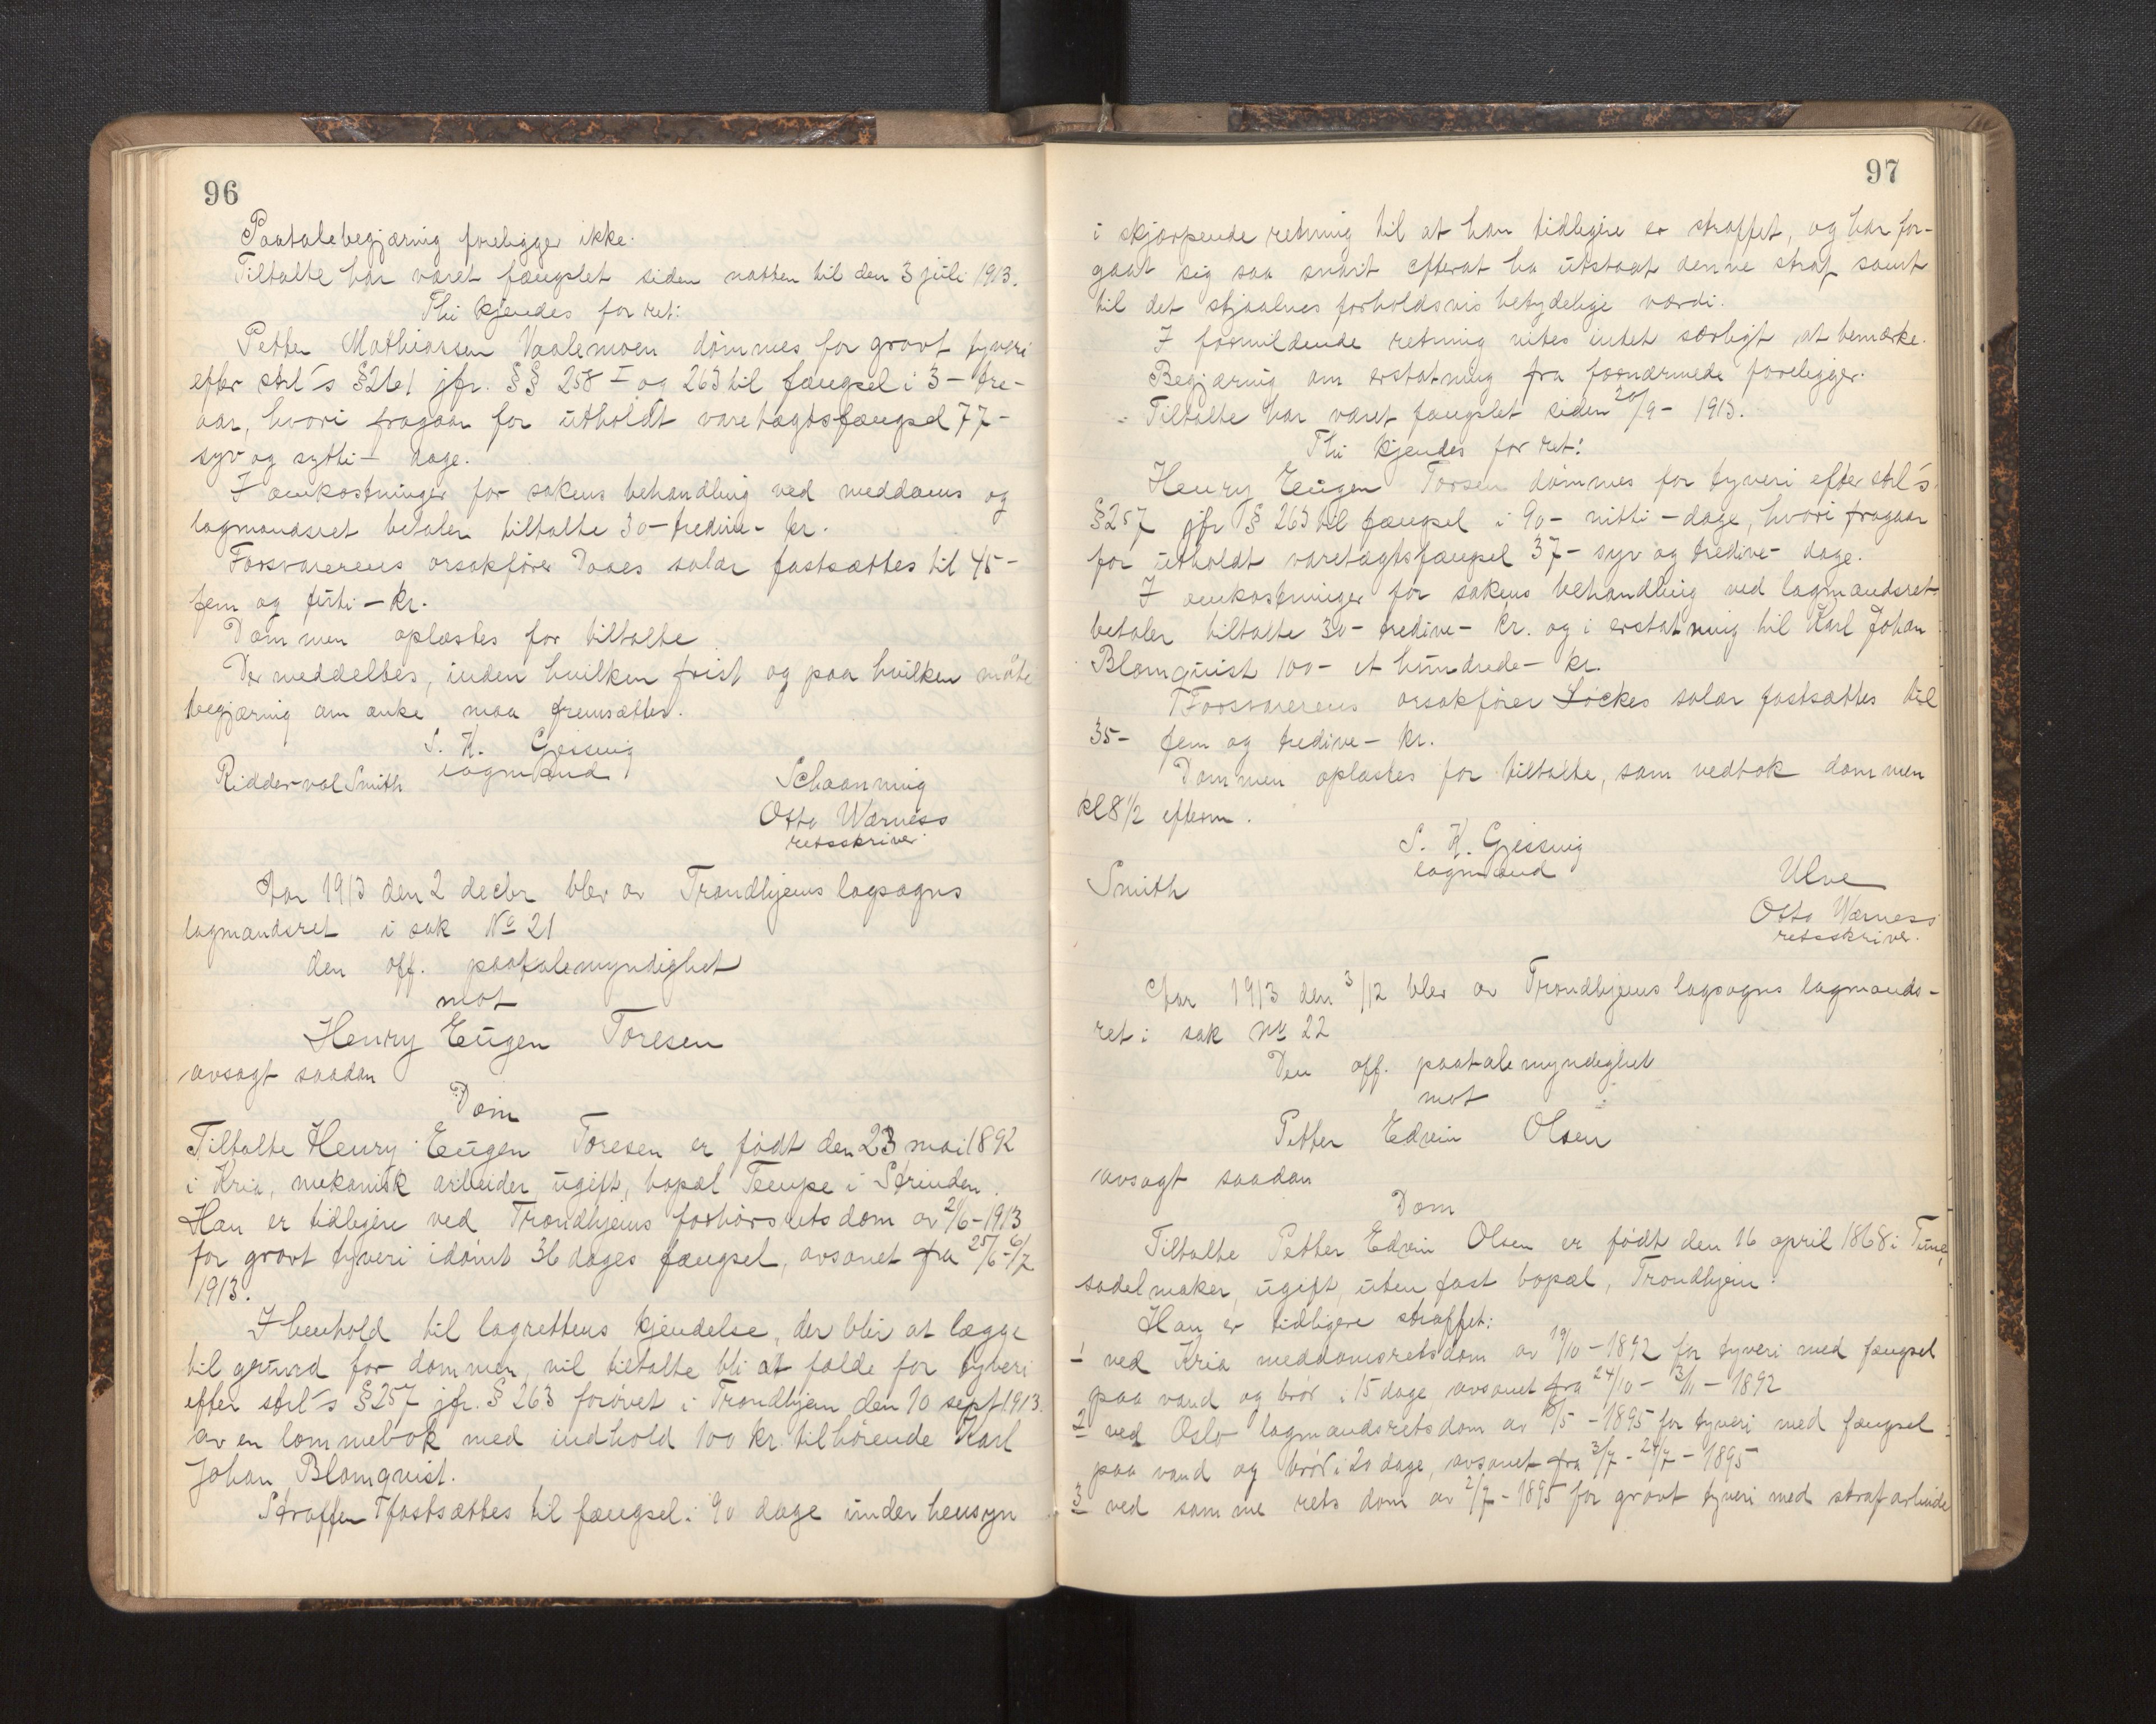 96
Paatalebegjæring foreligger ikke.
Tiltalte har været fængslet siden natten til den 3 juli 1913.
Thi kjendes for ret:
Petter Mathiassen Vaalemoen dømmes for grovt tyveri
efter strl's § 261 jfr. §§ 258 I og 263 til fængsel i 3 - tre -
aar, hvori fragaar for utholdt varetægtsfængsel 77 -
syv og sytti - dage.
I omkostninger for sakens behandling ved meddoms og
lagmandsret betaler tiltalte 30 - tredive - kr.
Forsvarerens orsakfører Daaes salær fastsættes til 45 -
fem og førti - kr.
Dommen oplæstes for tiltalte
Der meddeltes, inden hvilken frist og paa hvilken måte
begjæring om anke maa fremsættes.
S. K. Gjessing
lagmand
Riddervol Smith
Schaanning
Otto Wærness
retsskriver
Aar 1913 den 2 decbr blev av Trondhjems lagsogns
lagmandsret i sak No 21
den off. paatalemyndighet
mot
Henry Eugen Toresen
avsagt saadan
Dom
Tiltalte Henry Eugen Toresen er født den 23 mai 1892
i Kria, mekanisk arbeider, ugift, bopæl Tempe i Strinden.
Han er tidligere ved Trondhjems forhørsrets dom av 21/6-1913
for grovt tyveri idømt 36 dages fængsel, avsonet fra 25/6-6/7
1913.
I henhold til lagrettens kjendelse, der blir at lægge
til grund for dommen, vil tiltalte bli at fælde for tyveri
efter strl's § 257 jfr. § 263 forøvet i Trondhjem den 10 sept 1913
av en lommebok med indhold 100 kr. tilhørende Karl
Johan Blomqvist.
Straffen fastsættes til fængsel i 90 dage under hensyn
97
i skjærpende retning til at han tidligere er straffet, og har for-
gaat sig saa snart efterat ha utstaat denne straf samt
til det stjaalnes forholdsvis betydelige værdi.
I formildende retning vites intet særligt at bemærke.
Begjæring om erstatning fra fornærmede foreligger.
Tiltalte har været fængslet siden 20/9 - 1913.
Thi kjendes for ret:
Henry Eugen Torsen dømmes for tyveri efter strl's
§ 257 jfr § 263 til fængsel i 90 - nitti - dage, hvori fragaar
for utholdt varetægtsfængsel 37 - syv og tredive - dage.
I omkostninger for sakens behandling ved lagmandsret
betaler tiltalte 30 - tredive - kr. og i erstatning til Karl Johan
Blomquist 100 - et hundrede - kr.
Forsvarerens orsakfører Lockes salær fastsættes til
35 - fem og tredive - kr.
Dommen oplæstes for tiltalte, som vedtok dommen
kl 8 1/2 efterm.
S. K. Gjessing
lagmand
Smith
Ulve
Otto Wærness
retsskriver.
Aar 1913 den 3/12 blev av Trondhjems lagsogns lagmands-
ret i sak No 22
Den off. paatalemyndighet
mot
Petter Edvin Olsen
avsagt saadan
Dom
Tiltalte Petter Edvin Olsen er født den 16 april 1868 i Tune,
sadelmaker, ugift, uten fast bopæl, Trondhjem.
Han er tidligere straffet:
1 ved Kria meddomsretsdom av 19/10 - 1892 for tyveri med fængsel
paa vand og brød i 15 dage, avsonet fra 24/10 - 3/11 - 1892
2 ved Oslo lagmandsretsdom av 8/5 - 1895 for tyveri med fængsel
paa vand og brød i 20 dage, avsonet fra 3/7 - 24/7 - 1895
3 ved samme rets dom av 2/7 - 1895 for grovt tyveri med strafarbeide